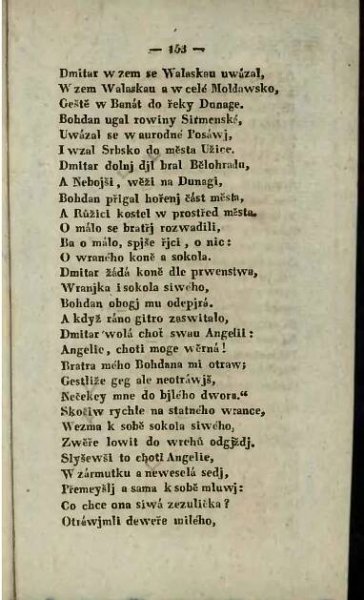 — 153 —
Dmitar w zem se Walaskau uwázal,
W zem Walaskau a w celé Moldawsko,
Geště w Banát do řeky Dunage.
Bohdan ugal rowiny Sirmenské,
Uwázal se w aurodné Posáwj,
I wzal Srbsko do města Užice.
Dmitar dolnj djl bral Bělohradu,
A Nebojši, wěži na Dunagi,
Bohdan přigal hořenj část města,
A Růžici kostel w prostřed města.
O málo se bratřj rozwadili,
Ba o málo, spjše řjci, o nic:
O wraného koně a sokola.
Dmitar žádá koně dle prwenstwa,
Wranjka i sokola siwého,
Bohdan obogj mu odepjrá.
A když ráno gitro zaswitalo,
Dmitar wolá choť swau Angelii:
Angelie, choti moge wěrná!
Bratra mého Bohdana mi otraw;
Gestliže geg ale neotráwjš,
Nečekey mne do bjlého dwora.“
Skočiw rychle na statného wrance,
Wezma k sobě sokola siwého,
Zwěře lowit do wrchů odgjždj.
Slyšewši to choti Angelie,
W zármutku a neweselá sedj,
Přemeyšlj a sama k sobě mluwj:
Co chce ona siwá zezulička?
Otráwjmli deweře milého,